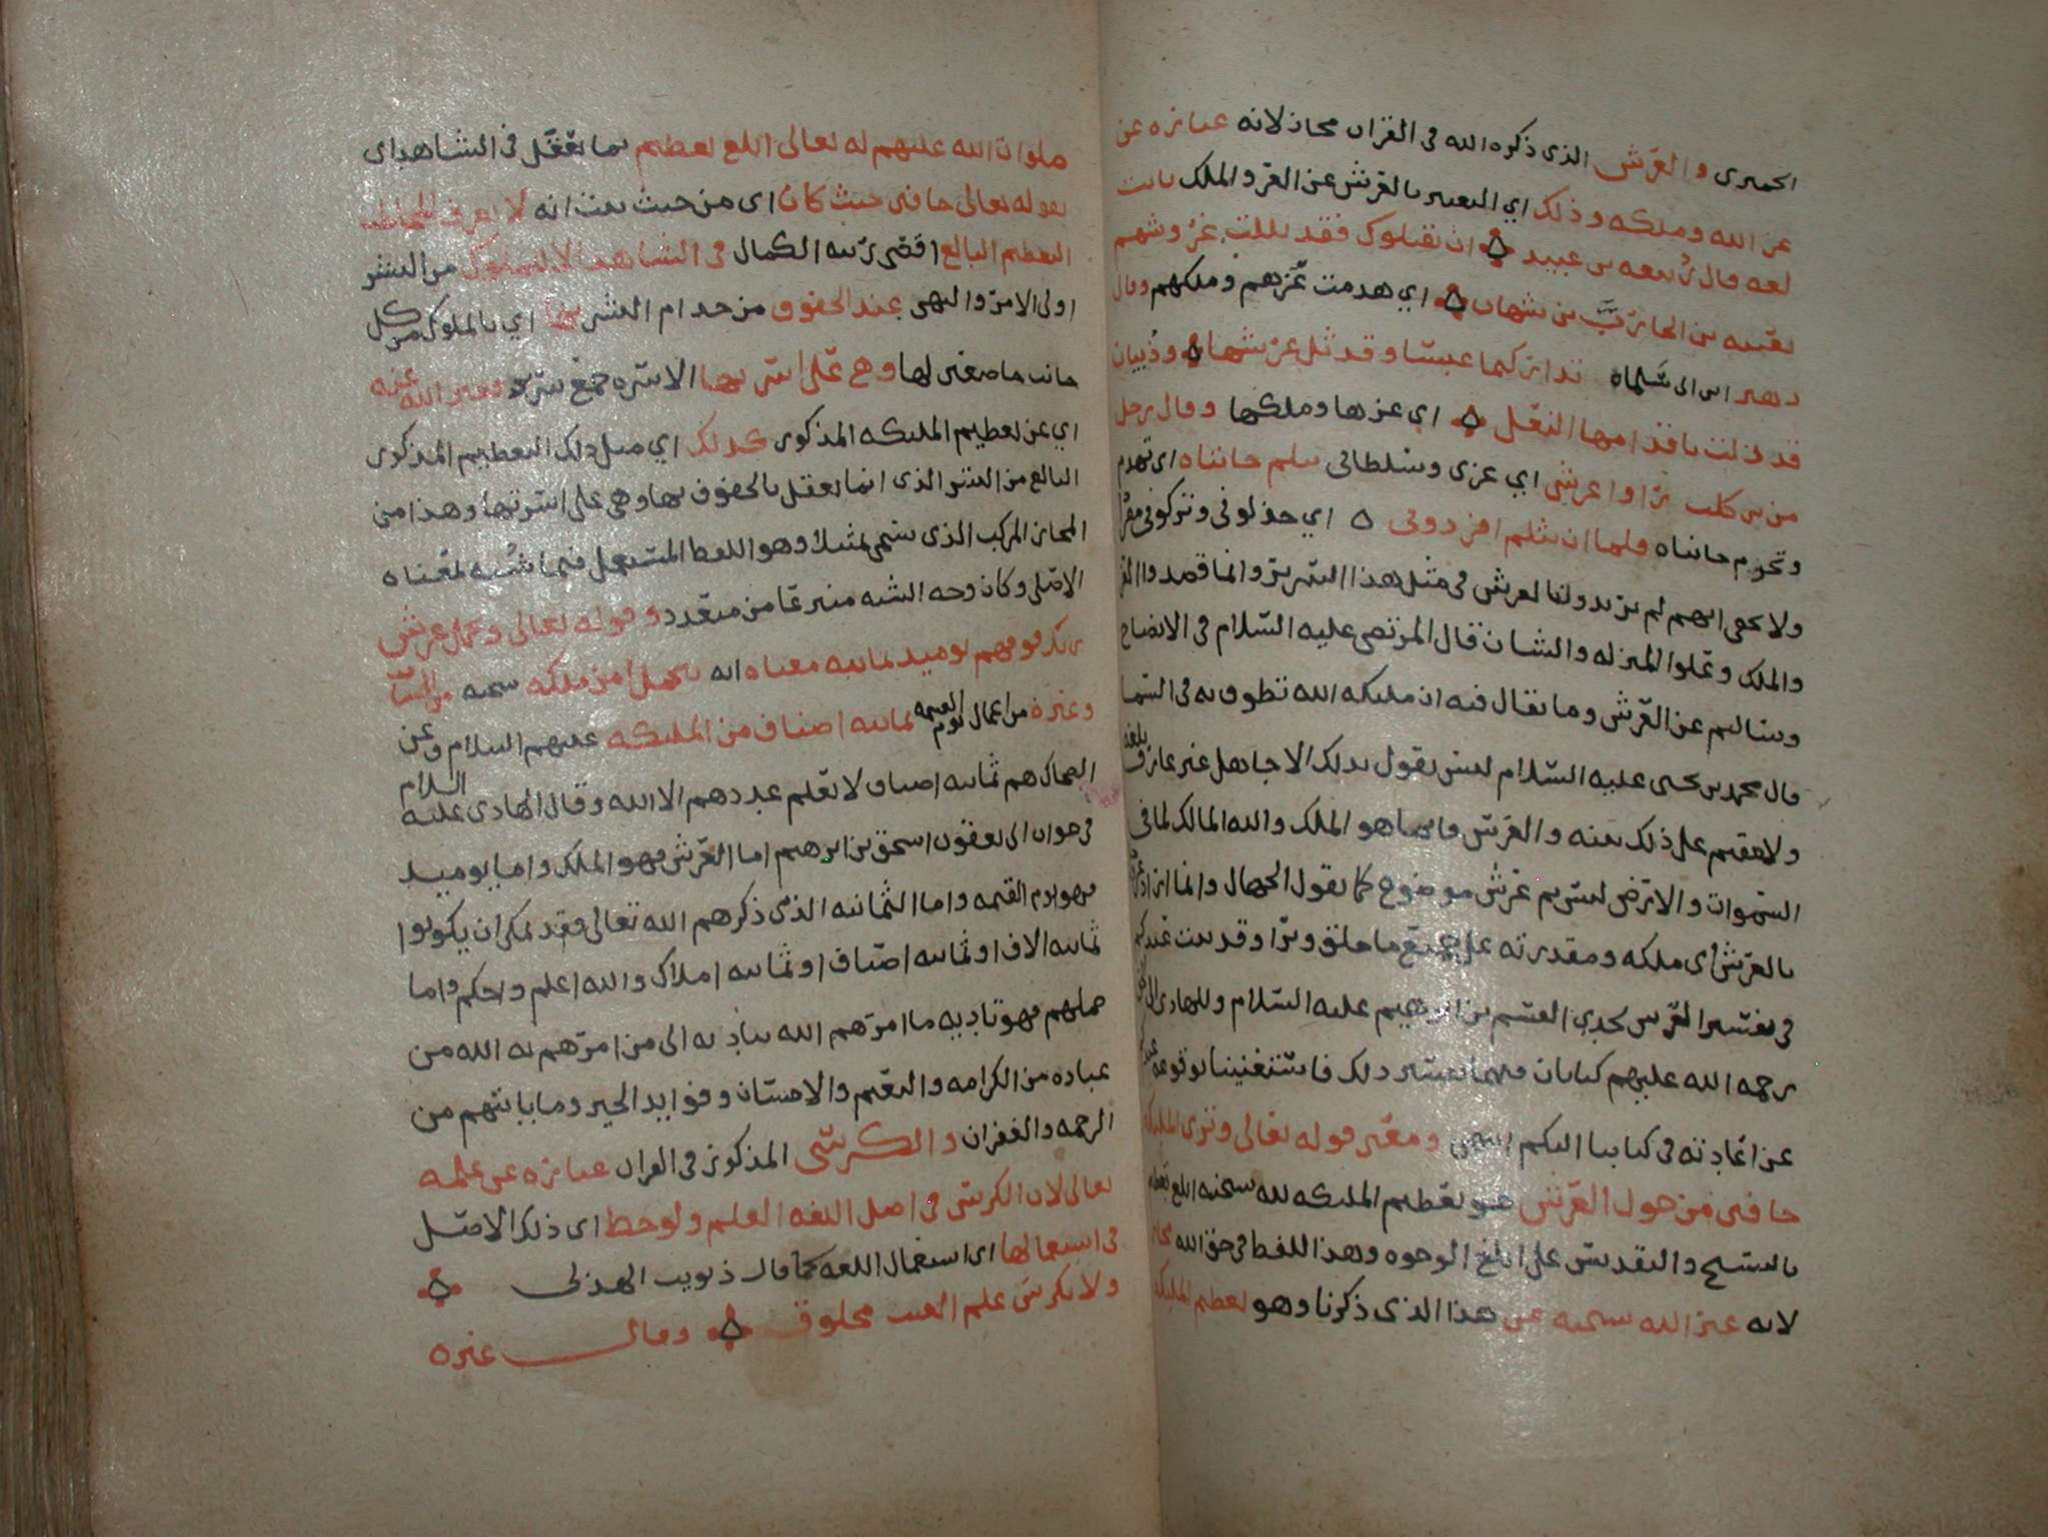 الحميري والعرش الذي ذكره الله في القران مجاز لانه عبارة عن
عز الله وملكه وذلك اي التعبير بالعرش عن العز والملك ثابت
لغة قال ربيعة بن عبيد ان يقتلوك فقد ثللت عروشهم
بعتيبة بن الحارث بن شهاب اي هدمت عزهم وملكهم وقال
زهير بن ابي سلماه تداركتما عبسا وقد ثل عرشها وذبيان
قد زلت باقدامها النعل اي عزها وملكها وقال رجل
من بني كلب راوا عرشي اي عزي وسلطاني تثلم جانباه اي تهدم
وتخرم جانباه فلما ان تثلم افردوني اي خذلوني وتركوني مفردا
ولا يخفى انهم لم يريدوا بالعرش في مثل هذا السرير وانما قصدوا العز
والملك وعلو المنزلة والشان قال المرتضى عليه السلام في الايضاح
وسالتم عن العرش وما يقال فيه ان ملئكة الله تطوف به في السما
قال محمد بن يحيى عليه السلام ليس يقول بذلك الا جاهل غير عارف بلغة
ولا مقيم على ذلك بينه والعرش فانما هو الملك والله المالك لما في
السموات والارض ليس ثم عرش موضوع كما يقول الجهال وانما اراد عز وجل
بالعرش اي ملكه ومقدرته على جميع ما خلق وبرا وقد بيت عندكم
في تفسير العرش لجدي القسم بن ابرهيم عليه السلام وللهادي الى الحق
رحمة الله عليهم كتابان فيهما تفسير ذلك فاستغنينا بوقوعه عندكم
عن اعادته في كتابنا اليكم انتهى ومعنى قوله تعالى وترى الملئكة
حافين من حول العرش هو تعظيم الملئكة لله سبحنه ابلغ تعظيم
بالتسبيح والتقديس على ابلغ الوجوه وهذا اللفظ في حق الله مجاز
لانه عبر الله سبحنه عن هذا الذي ذكرنا وهو تعظيم الملئكة
صلوات الله عليهم له تعالى ابلغ تعظيم بما يعقل في الشاهد اي
بقوله تعالى حافين حيث كان اي من حيث ثبت انه لا يعرف المخاطب
التعظيم البالغ اقصى رتبة الكمال في الشاهد الا للملوك من البشر
اولي الامر والنهي عند الحفوف من خدام البشر بها اي بالملوك من كل
جانب حاصفين لها وهي على اسرتها الاسرة جمع سرير فعبر الله عنه
اي عن تعظيم الملئكة المذكور كذلك اي مثل ذلك التعظيم المذكور
البالغ من البشر الذي انما يعقل بالحفوف بها وهي على اسرتها وهذا من
المجاز المركب الذي يسمى تمثيلا وهو اللفظ المستعمل فيما شبه بمعناه
الاصلي وكان وجه الشبه منتزعا من متعدد وقوله تعالى ويحمل عرش
ربك فوقهم يوميذ ثمانية معناه انه يتحمل امر ملكه سبحنه من الحساب
وغيره من اعمال يوم القيمة ثمانية اصناف من الملئكة عليهم السلام وعن
الضحاك هم ثمانية اصناف لا يعلم عددهم الا الله وقال الهادي عليه السلام
في جواب ابي يعقوب اسحق بن ابرهيم اما العرش فهو الملك واما يوميذ
فهو يوم القيمة واما الثمانية الذي ذكرهم الله تعالى فقد يمكن ان يكونوا
ثمانية الاف او ثمانية اصناف او ثمانية املاك والله اعلم واحكم واما
حملهم فهو تادية ما امرهم الله بتاديه الى من امرهم به الله من
عباده من الكرامة والنعيم والاحسان وفوايد الخير وما ياتيهم من
الرحمة والغفران والكرسي المذكور في القران عبارة عن علمه
تعالى لان الكرسي في اصل اللغة العلم ولوحظ اي ذلك الاصل
في استعمالها اي استعمال اللغة كما قال ذويب الهذلي
ولا بكرسي علم الغيب مخلوق وقال غيره